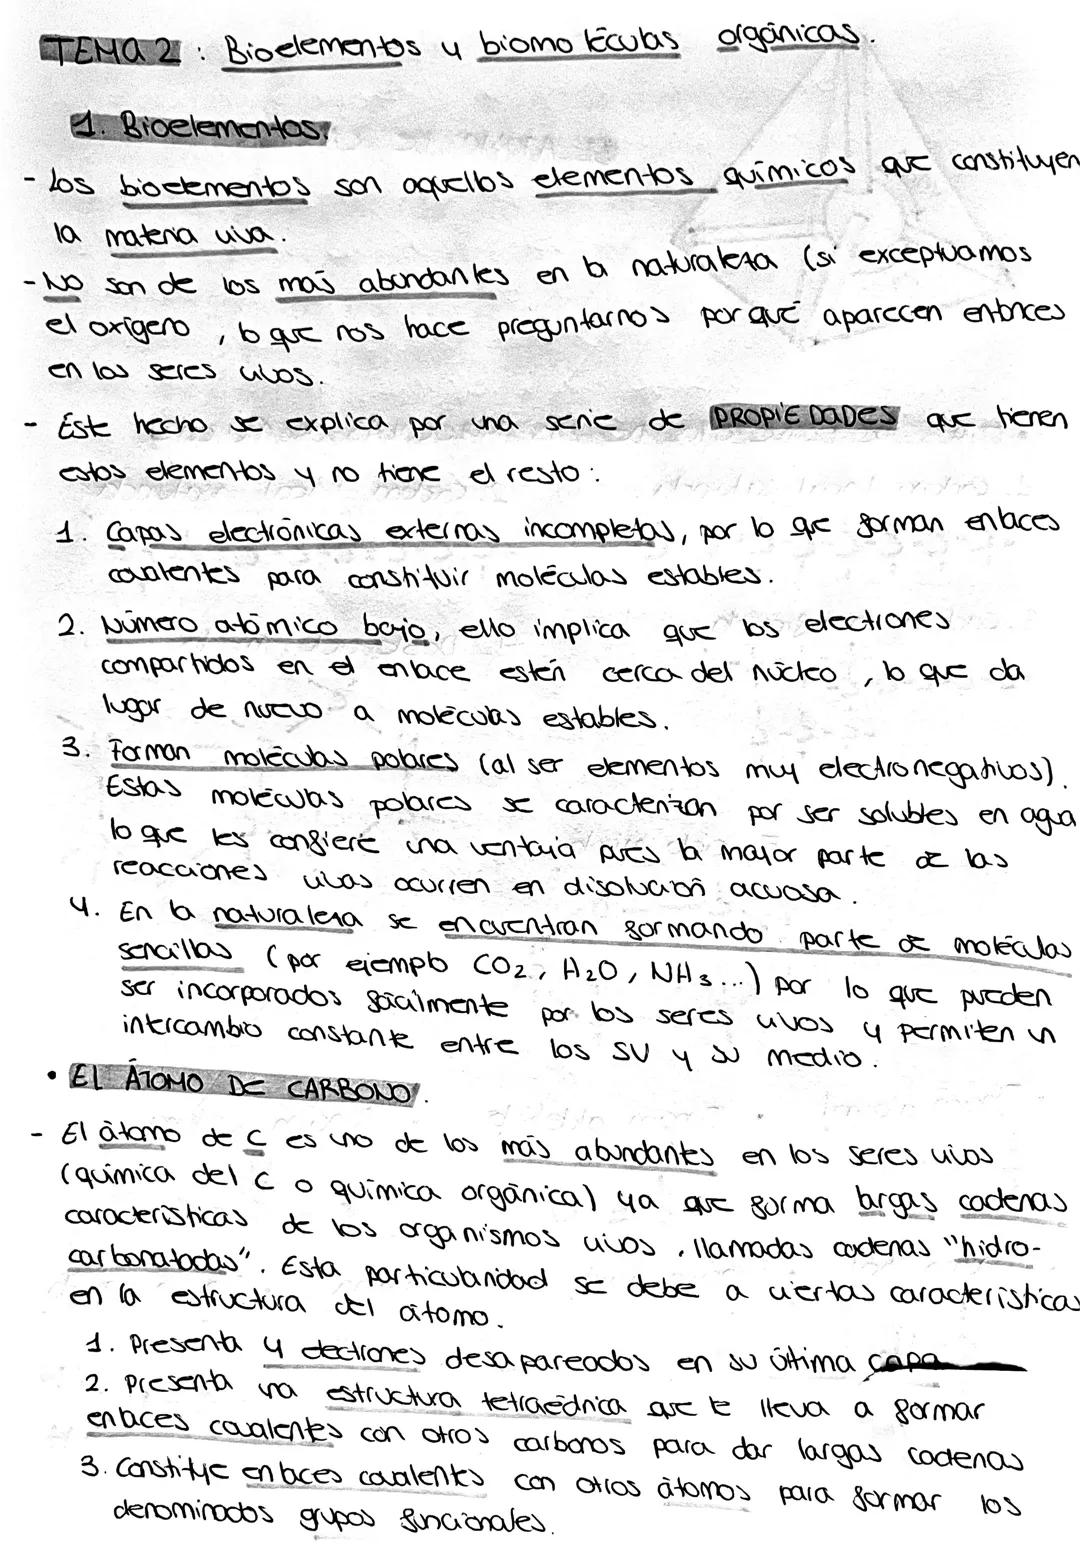 TEMA 2 : Bioelementos y biomoléculas orgánicas.
1. Bioelementos:
- Los bioelementos son aquellos elementos químicos que constituyen
la materia viva.
- No son de los más abundantes en la naturaleza (si exceptuamos
el oxígeno , lo que nos hace preguntarnos por qué aparecen entonces
en los seres vivos.
- Este hecho se explica por una serie de PROPIEDADES que tienen
estos elementos y no tiene el resto :
1. Capas electrónicas externas incompletas, por lo que forman enlaces
covalentes para constituir moléculas estables.
2. Número atómico bajo, ello implica que los electrones
compartidos en el enlace estén cerca del núcleo , lo que da
lugar de nuevo a moléculas estables.
3. Forman moléculas polares (al ser elementos muy electronegativos).
Estas moléculas polares se caracterizan por ser solubles en agua
lo que les confiere una ventaja pues la mayor parte de las
reacciones vivas ocurren en disolución acuosa.
4. En la naturaleza se encuentran formando parte de moléculas
sencillas (por ejemplo CO2, H2O, NH3...) por lo que pueden
ser incorporados fácilmente por los seres vivos y permiten un
intercambio constante entre los SV y su medio.
• EL ÁTOMO DE CARBONO.
- El átomo de C es uno de los más abundantes en los seres vivos
(química del C o química orgánica) ya que forma largas cadenas
características de los organismos vivos, llamadas cadenas "hidro-
carbonatadas". Esta particularidad se debe a ciertas características
en la estructura del átomo.
1. Presenta 4 electrones desapareados en su última capa
2. Presenta una estructura tetraédrica que te lleva a formar
enlaces covalentes con otros carbonos para dar largas cadenas
3. Constituye enlaces covalentes con otros átomos para formar los
denominados grupos funcionales.